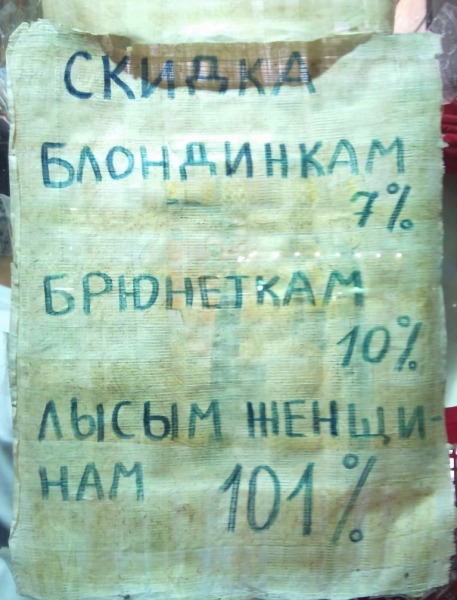 СКИДКА
БЛОНДИНКАМ
7%
БРЮНЕТКАМ
10%
ЛЫСЫМ ЖЕНЩИ-
НАМ 101%